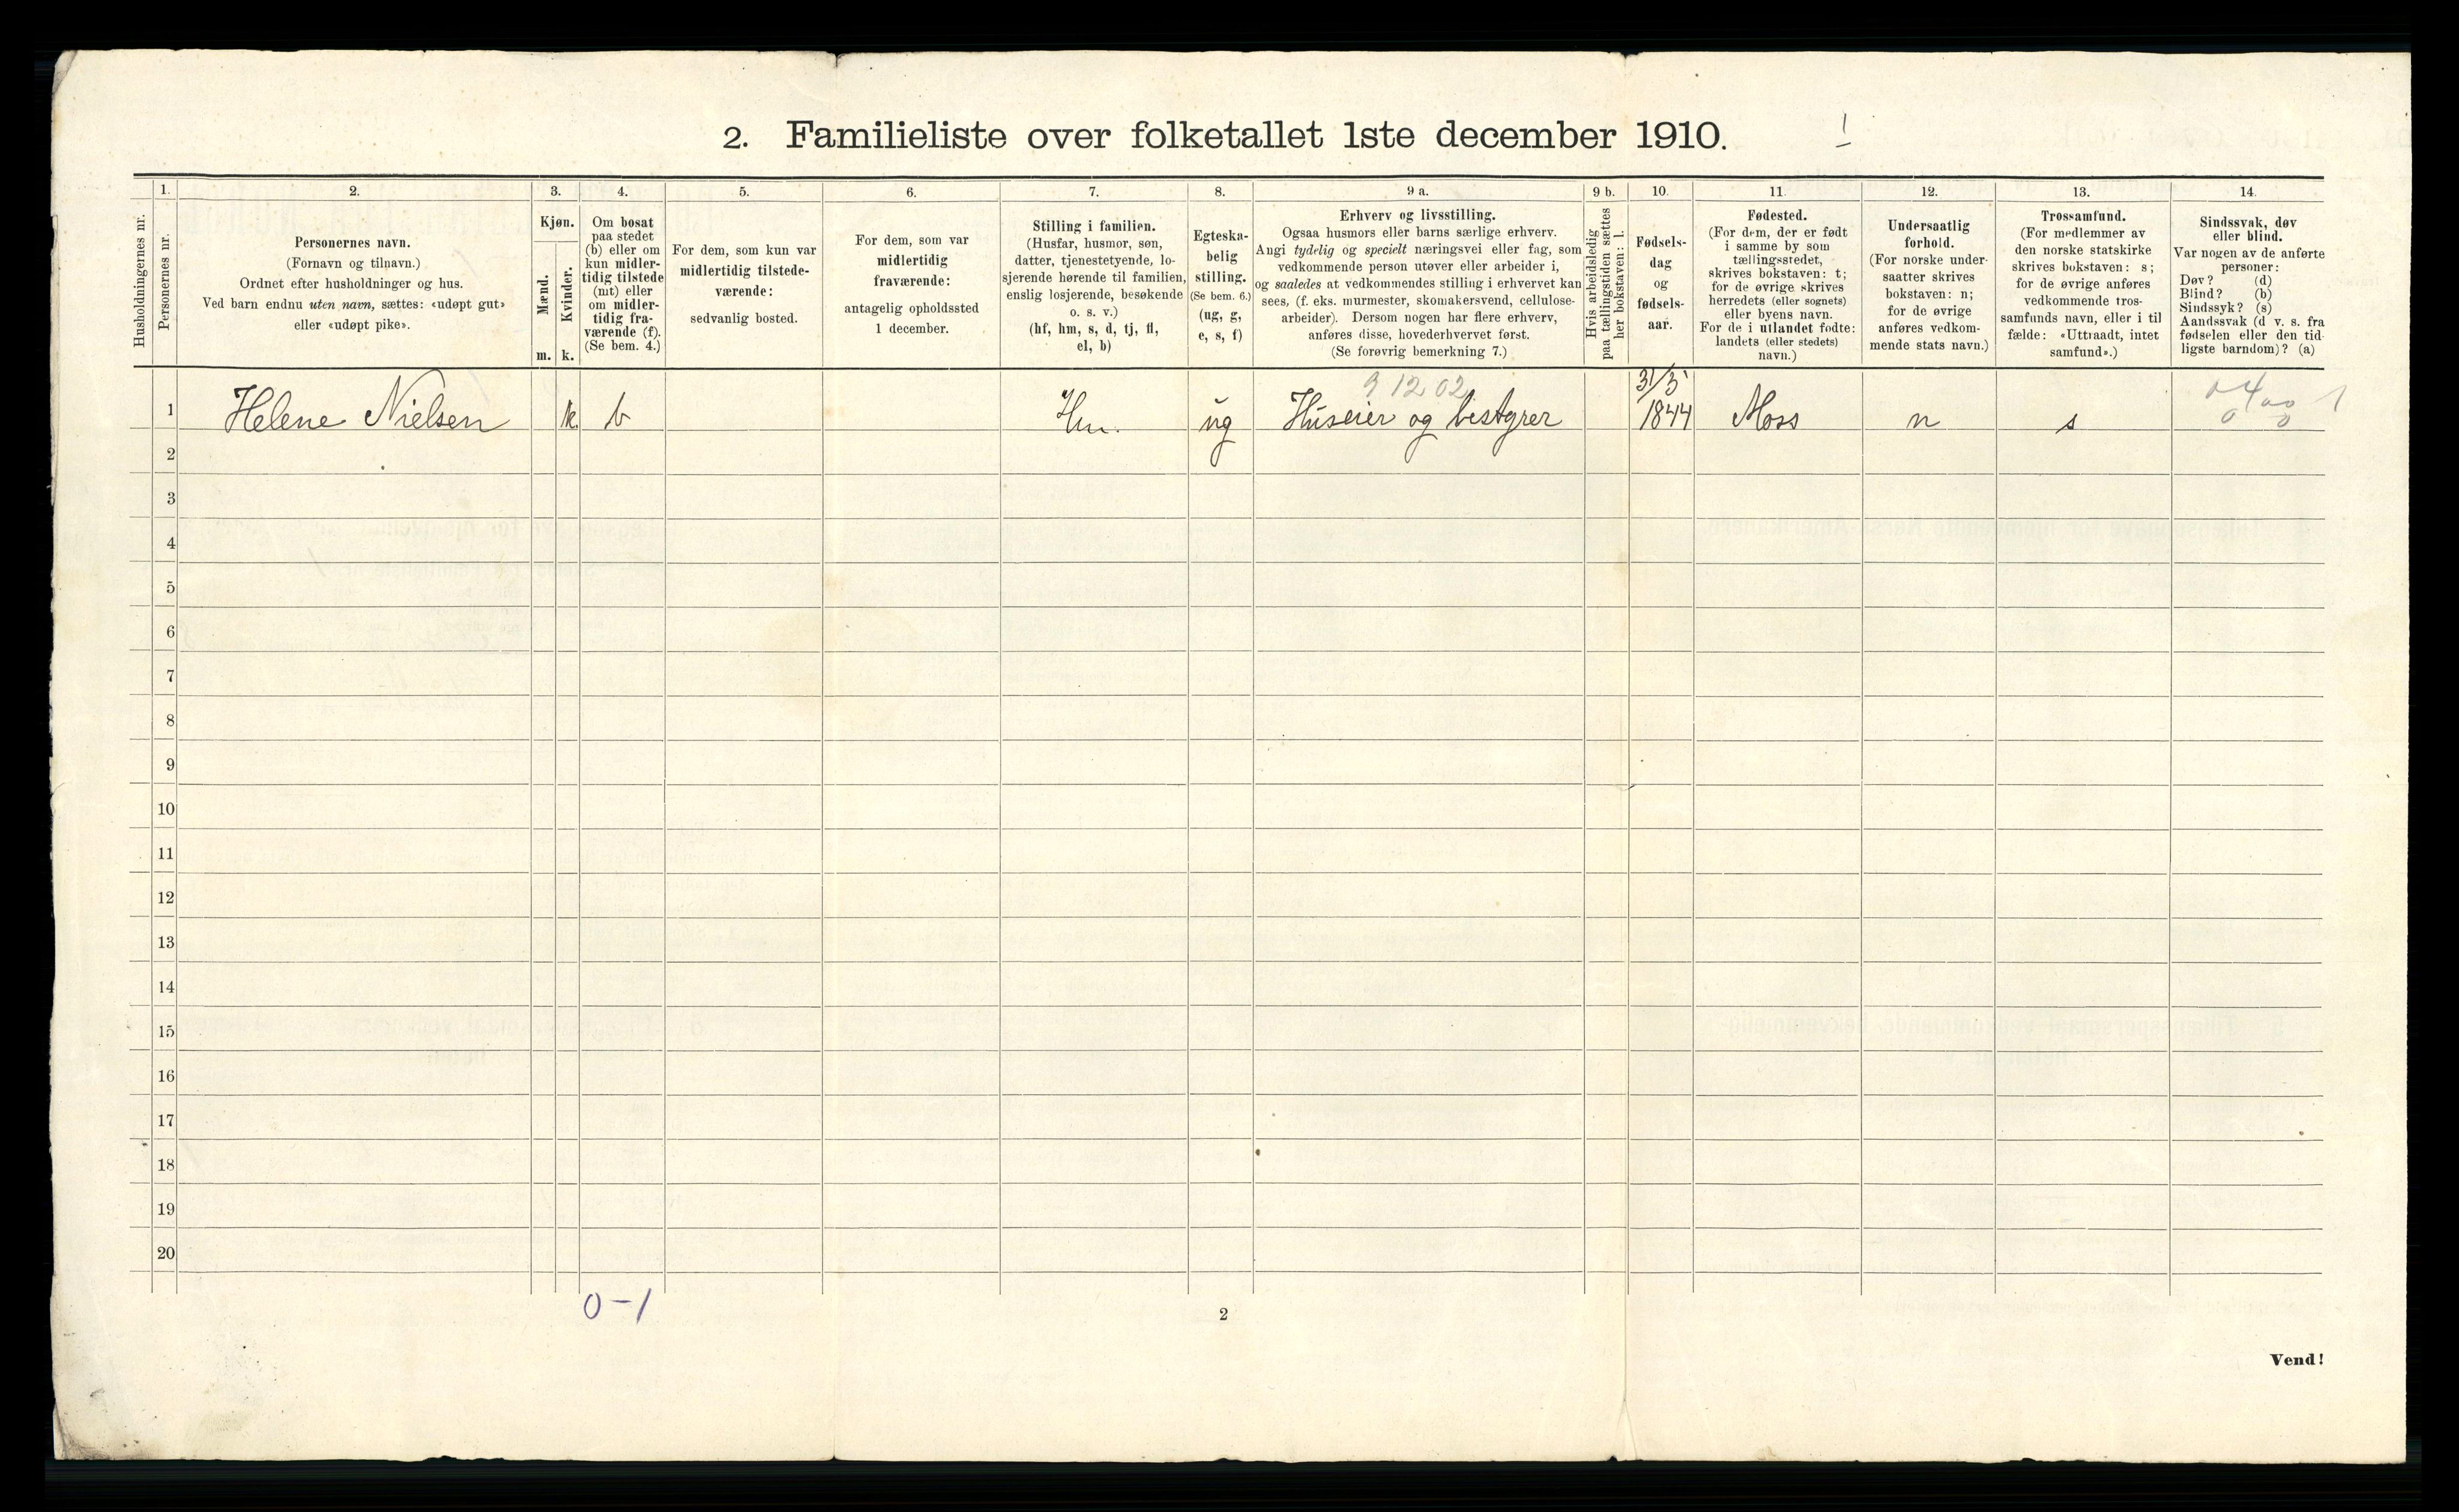 2. Familieliste over folketallet 1ste december 1910.
1
Husholdningernes nr.
1.
Personernes nr.
2.
Personernes navn.
(Fornavn og tilnavn.)
Ordnet efter husholdninger og hus.
Ved barn endnu uten navn, sættes: «udøpt gut»
eller «udøpt pike».
3.
Kjøn.
Mænd.
Kvinder.
m. k.
4.
Om bosat
paa stedet
(b) eller om
kun midler-
tidig tilstede
(mt) eller
om midler-
tidig fra-
værende (f).
(Se bem. 4.)
5.
For dem, som kun var
midlertidig tilstede-
værende:
sedvanlig bosted.
6.
For dem, som var
midlertidig
fraværende:
antagelig opholdssted
1 december.
7.
Stilling i familien.
(Husfar, husmor, søn,
datter, tjenestetyende, lo-
sjerende hørende til familien,
enslig losjerende, besøkende
o. s. v.)
(hf, hm, s, d, tj, fl,
el, b)
8.
Egteska-
belig
stilling.
(Se bem. 6.)
(ug, g,
e, s, f)
9 a.
Erhverv og livsstilling.
Ogsaa husmors eller barns særlige erhverv.
Angi tydelig og specielt næringsvei eller fag, som
vedkommende person utøver eller arbeider i,
og saaledes at vedkommendes stilling i erhvervet kan
sees, (f. eks. murmester, skomakersvend, cellulose-
arbeider). Dersom nogen har flere erhverv,
anføres disse, hovederhvervet først.
(Se forøvrig bemerkning 7.)
9 b.
Hvis arbeidsledig
paa tællingstiden sættes
her bokstaven: l.
10.
Fødsels-
dag
og
fødsels-
aar.
11.
Fødested.
(For dem, der er født
i samme by som
tællingsstedet,
skrives bokstaven: t;
for de øvrige skrives
herredets (eller sognets)
eller byens navn.
For de i utlandet fødte:
landets (eller stedets)
navn.)
12.
Undersaatlig
forhold.
(For norske under-
saatter skrives
bokstaven: n;
for de øvrige
anføres vedkom-
mende stats navn.)
13.
Trossamfund.
(For medlemmer av
den norske statskirke
skrives bokstaven: s;
for de øvrige anføres
vedkommende tros-
samfunds navn, eller i til
fælde: «Uttraadt, intet
samfund».)
14.
Sindssvak, døv
eller blind.
Var nogen av de anførte
personer:
Døv? (d)
Blind? (b)
Sindssyk? (s)
Aandssvak (d v. s. fra
fødselen eller den tid-
ligste barndom)? (a)
9 12 02 31/5
1 Helene Nielsen k b Hm. ug Huseier og bestyrer 1844 Moss n s
2
3
4
5
6
7
8
9
10
11
12
13
14
15
16
17
18
19
20
0-1
2
Vend!